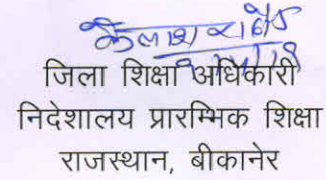 कैलाश
जिला शिक्षा अधिकारी
निदेशालय प्रारम्भिक शिक्षा
राजस्थान, बीकानेर